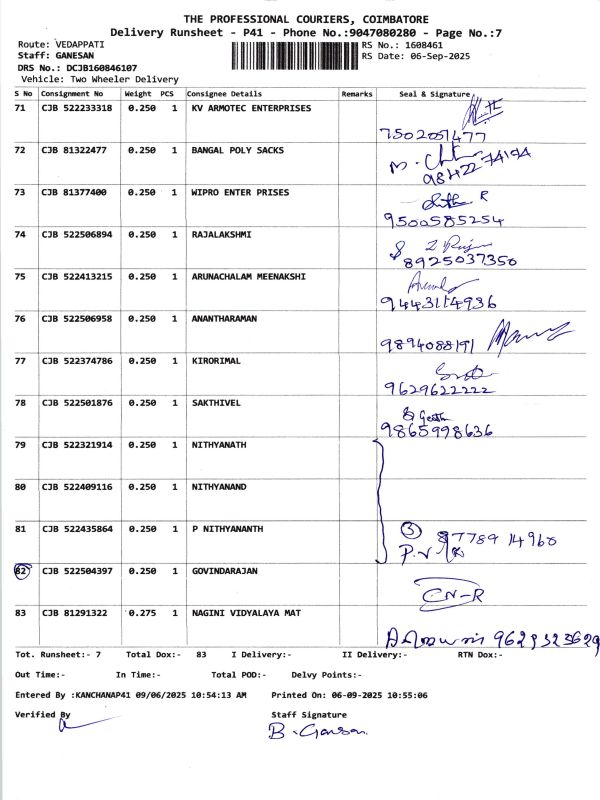 THE PROFESSIONAL COURIERS, COIMBATORE
Delivery Runsheet - P41 - Phone No.:9047080280 - Page No.:7
Route: VEDAPPATI RS No.: 1608461
Staff: GANESAN RS Date: 06-Sep-2025
DRS No.: DCJB160846107
Vehicle: Two Wheeler Delivery
S No Consignment No Weight PCS Consignee Details Remarks Seal & Signature
71 CJB 522233318 0.250 1 KV ARMOTEC ENTERPRISES
7502051477
72 CJB 81322477 0.250 1 BANGAL POLY SACKS
98422 74194
73 CJB 81377400 0.250 1 WIPRO ENTER PRISES
9500585254
74 CJB 522506894 0.250 1 RAJALAKSHMI
8925037350
75 CJB 522413215 0.250 1 ARUNACHALAM MEENAKSHI
9443114936
76 CJB 522506958 0.250 1 ANANTHARAMAN
9894088191
77 CJB 522374786 0.250 1 KIRORIMAL
9629622222
78 CJB 522501876 0.250 1 SAKTHIVEL
9865998636
79 CJB 522321914 0.250 1 NITHYANATH
80 CJB 522409116 0.250 1 NITHYANAND
81 CJB 522435864 0.250 1 P NITHYANANTH
3 87789 14960
82 CJB 522504397 0.250 1 GOVINDARAJAN
CN-R
83 CJB 81291322 0.275 1 NAGINI VIDYALAYA MAT
9629323629
Tot. Runsheet:- 7 Total Dox:- 83 I Delivery:- II Delivery:- RTN Dox:-
Out Time:- In Time:- Total POD:- Delvy Points:-
Entered By :KANCHANAP41 09/06/2025 10:54:13 AM Printed On: 06-09-2025 10:55:06
Verified By Staff Signature
B. Ganesan